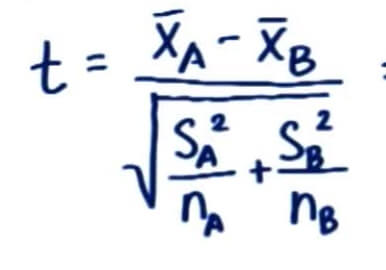 t = (x̄_A - x̄_B) / √(S_A²/n_A + S_B²/n_B)